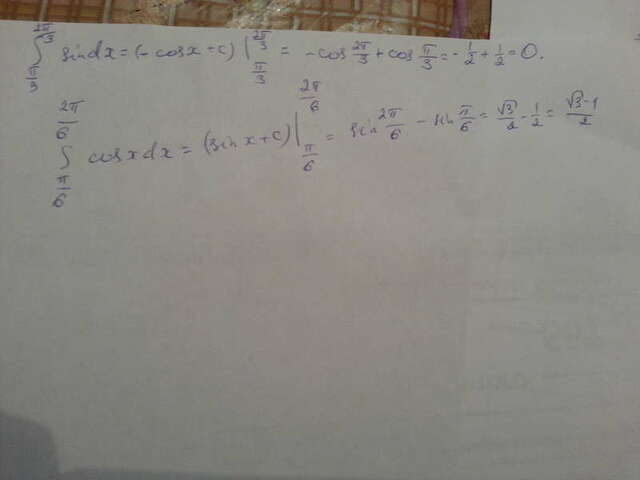 ∫_{π/3}^{2π/3} sindx = (- cosx + c) |_{π/3}^{2π/3} = - cos 2π/3 + cos π/3 = - 1/2 + 1/2 = 0.
∫_{π/6}^{2π/6} cosxdx = (sin x + C) |_{π/6}^{2π/6} = sin 2π/6 - sin π/6 = √3/2 - 1/2 = √3-1/2